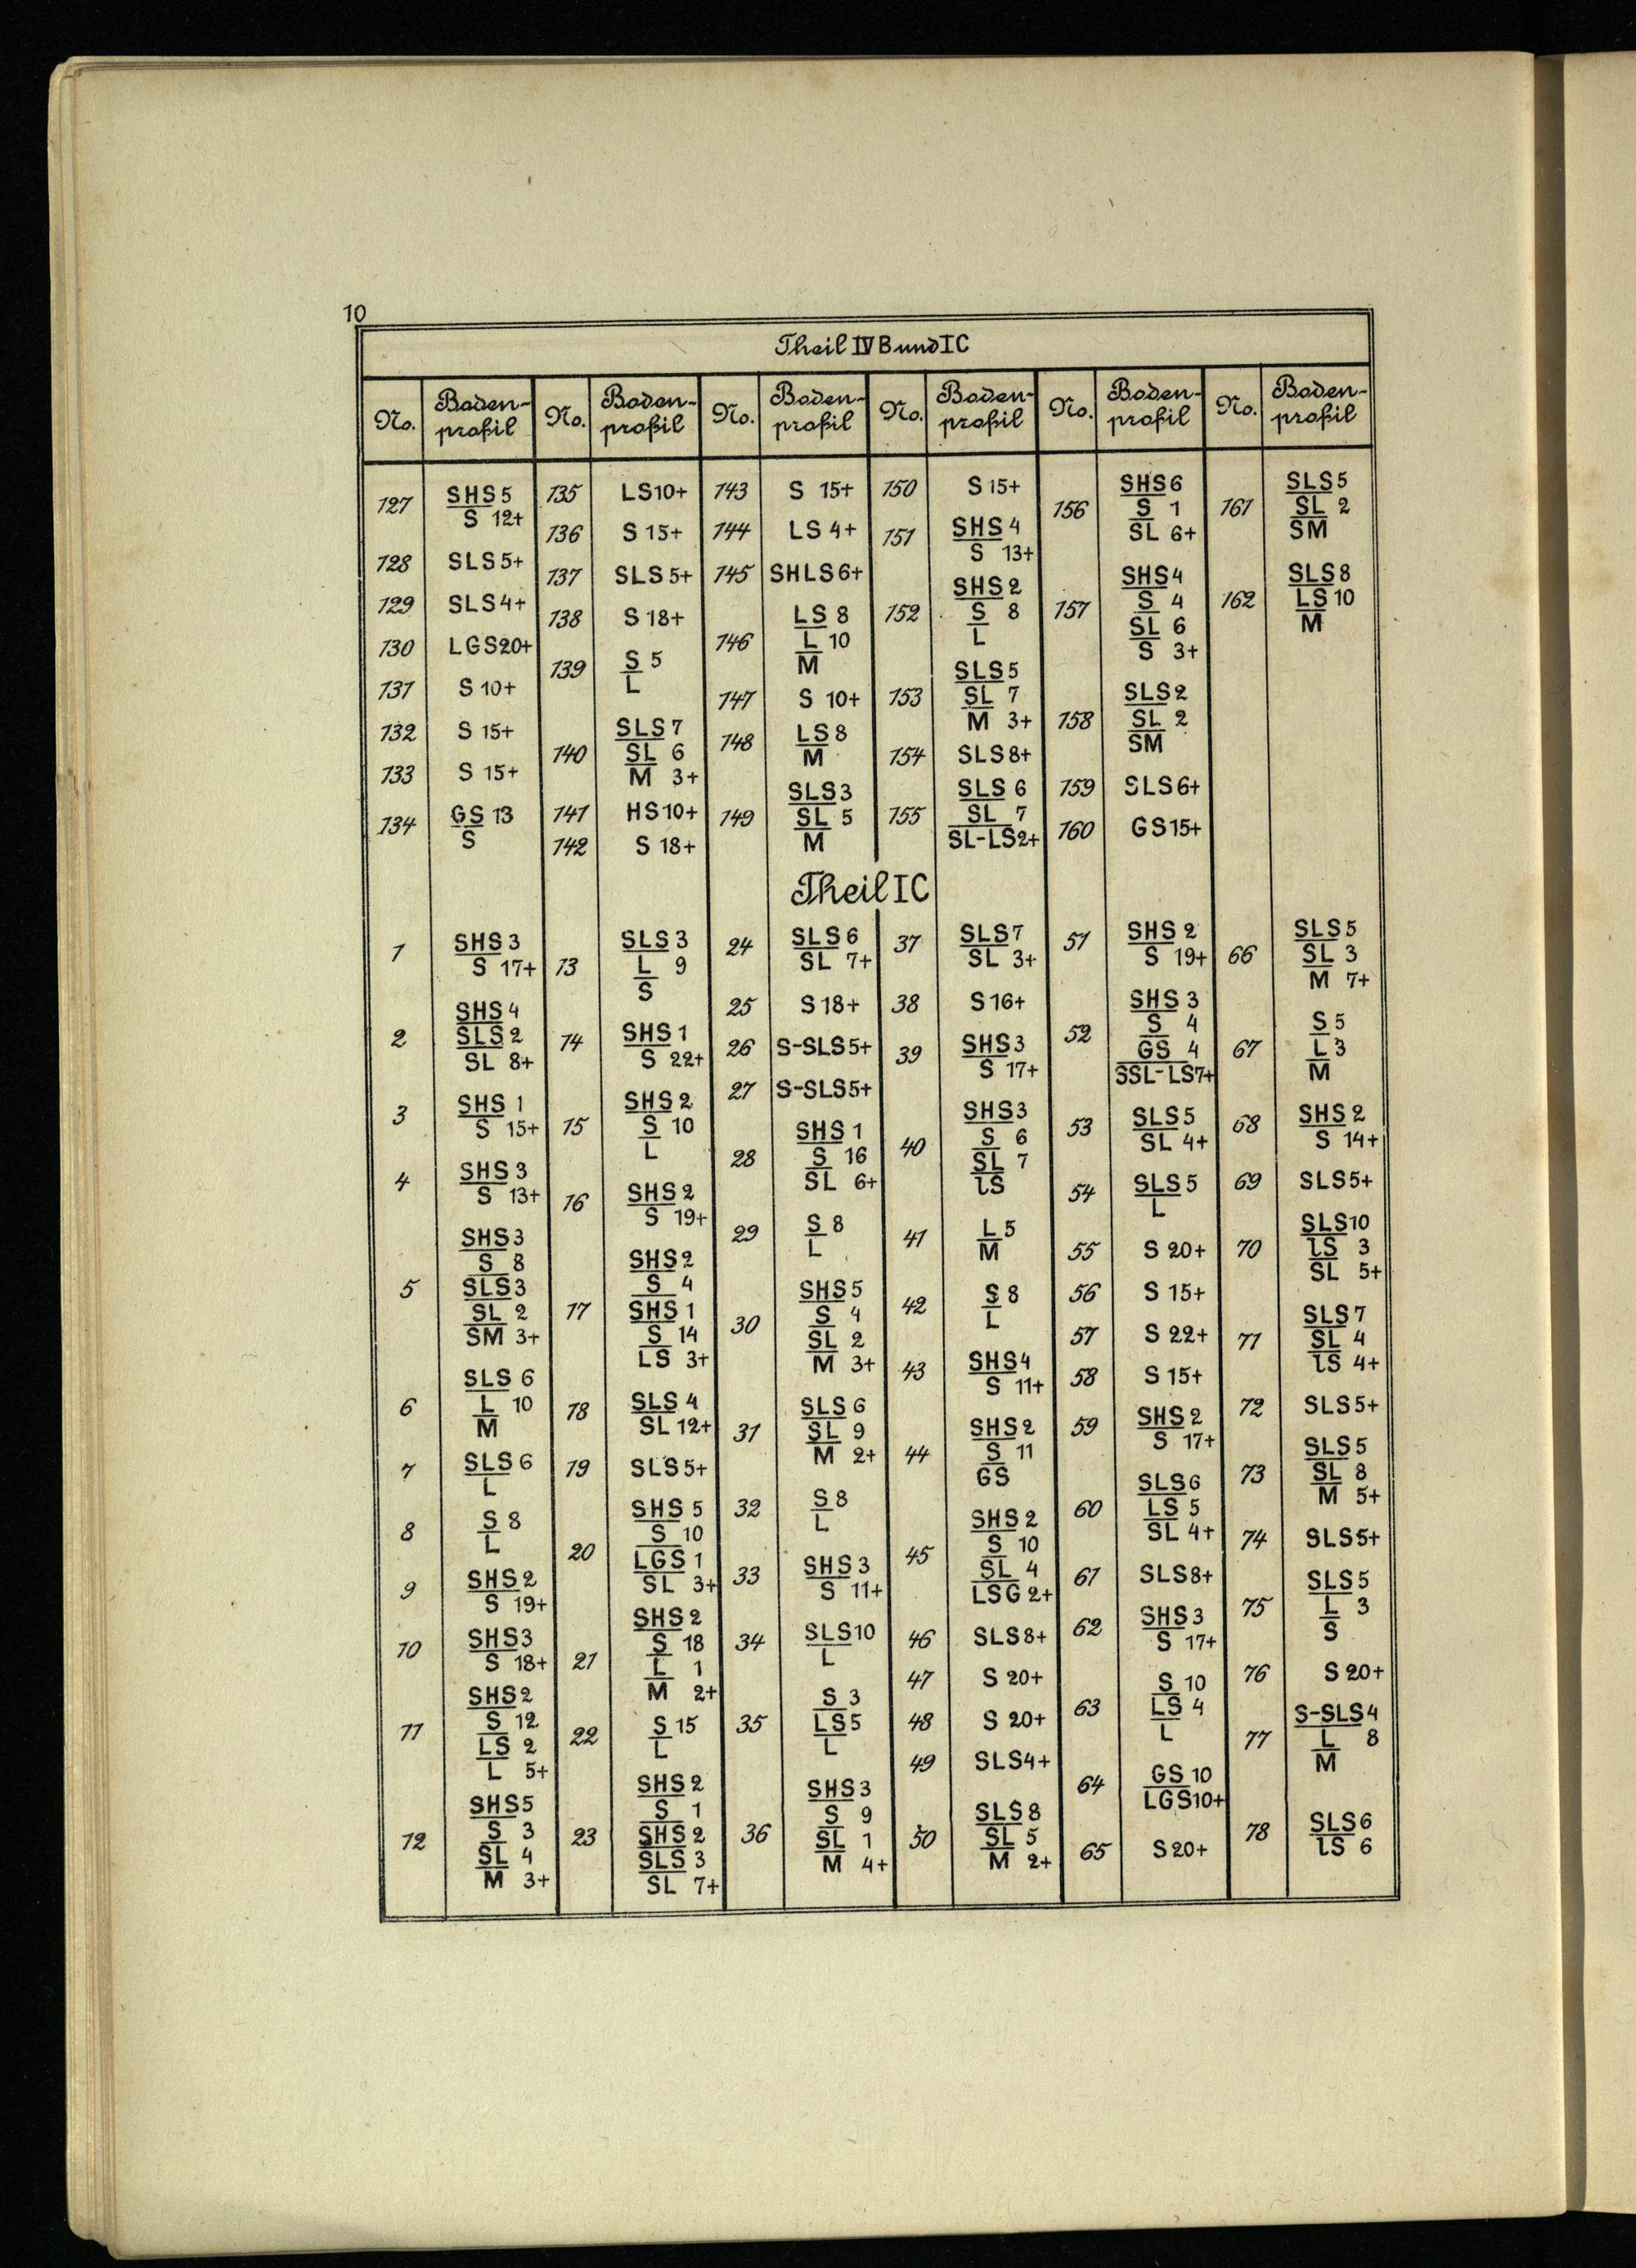 10
Theil IV B und IC
No. Boden-profil No. Boden-profil No. Boden-profil No. Boden-profil No. Boden-profil No. Boden-profil
127
SHS 5
S 12+
128 SLS 5+
129 SLS 4+
130 LGS 20+
131 S 10+
132 S 15+
133 S 15+
134
GS 13
S
135 LS 10+
136 S 15+
137 SLS 5+
138 S 18+
139
S 5
L
140
SLS 7
SL 6
M 3+
141 HS 10+
142 S 18+
143 S 15+
144 LS 4+
145 SHLS 6+
146
LS 8
L 10
M
147 S 10+
148
LS 8
M
149
SLS 3
SL 5
M
150 S 15+
151
SHS 4
S 13+
152
SHS 2
S 8
L
153
SLS 5
SL 7
M 3+
154 SLS 8+
155
SLS 6
SL 7
SL-LS 2+
156
SHS 6
S 1
SL 6+
157
SHS 4
S 4
SL 6
S 3+
158
SLS 2
SL 2
SM
159 SLS 6+
160 GS 15+
161
SLS 5
SL 2
SM
162
SLS 8
LS 10
M
Theil IC
1
SHS 3
S 17+
2
SHS 4
SLS 2
SL 8+
3
SHS 1
S 15+
4
SHS 3
S 13+
5
SHS 3
S 8
SLS 3
SL 2
SM 3+
6
SLS 6
L 10
M
7
SLS 6
L
8
S 8
L
9
SHS 2
S 19+
10
SHS 3
S 18+
11
SHS 2
S 12
LS 2
L 5+
12
SHS 5
S 3
SL 4
M 3+
13
SLS 3
L 9
S
14
SHS 1
S 22+
15
SHS 2
S 10
L
16
SHS 2
S 19+
17
SHS 2
S 4
SHS 1
S 14
LS 3+
18
SLS 4
SL 12+
19 SLS 5+
20
SHS 5
S 10
LGS 1
SL 3+
21
SHS 2
S 18
L 1
M 2+
22
S 15
L
23
SHS 2
S 1
SHS 2
SLS 3
SL 7+
24
SLS 6
SL 7+
25 S 18+
26 S-SLS 5+
27 S-SLS 5+
28
SHS 1
S 16
SL 6+
29
S 8
L
30
SHS 5
S 4
SL 2
M 3+
31
SLS 6
SL 9
M 2+
32
S 8
L
33
SHS 3
S 11+
34
SLS 10
L
35
S 3
LS 5
L
36
SHS 3
S 9
SL 1
M 4+
37
SLS 7
SL 3+
38 S 16+
39
SHS 3
S 17+
40
SHS 3
S 6
SL 7
lS
41
L 5
M
42
S 8
L
43
SHS 4
S 11+
44
SHS 2
S 11
GS
45
SHS 2
S 10
SL 4
LSG 2+
46 SLS 8+
47 S 20+
48 S 20+
49 SLS 4+
50
SLS 8
SL 5
M 2+
51
SHS 2
S 19+
52
SHS 3
S 4
GS 4
SSL-LS 7+
53
SLS 5
SL 4+
54
SLS 5
L
55 S 20+
56 S 15+
57 S 22+
58 S 15+
59
SHS 2
S 17+
60
SLS 6
LS 5
SL 4+
61 SLS 8+
62
SHS 3
S 17+
63
S 10
LS 4
L
64
GS 10
LGS 10+
65 S 20+
66
SLS 5
SL 3
M 7+
67
S 5
L 3
M
68
SHS 2
S 14+
69 SLS 5+
70
SLS 10
lS 3
SL 5+
71
SLS 7
SL 4
lS 4+
72 SLS 5+
73
SLS 5
SL 8
M 5+
74 SLS 5+
75
SLS 5
L 3
S
76 S 20+
77
S-SLS 4
L 8
M
78
SLS 6
lS 6